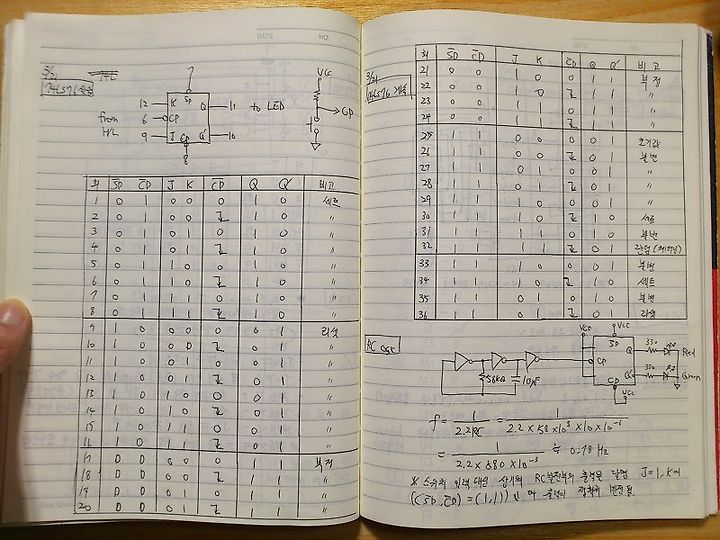 3/21
74LS76 실습
7
12 K SD Q 11 to LED
from 6 CP
9 J CD Q' 10
8
Vcc
CP
회 SD CD J K CP Q Q' 비고
1 0 1 0 0 0 1 0 세트
2 0 1 0 0 1 0 〃
3 0 1 0 1 0 1 0 〃
4 0 1 0 1 1 0 〃
5 0 1 1 0 0 1 0 〃
6 0 1 1 0 1 0 〃
7 0 1 1 1 0 1 0 〃
8 0 1 1 1 1 0 〃
9 1 0 0 0 0 0 1 리셋
10 1 0 0 0 0 1 〃
11 1 0 0 1 0 0 1 〃
12 1 0 0 1 0 1 〃
13 1 0 1 0 0 0 1 〃
14 1 0 1 0 0 1 〃
15 1 0 1 1 0 0 1 〃
16 1 0 1 1 0 1 〃
17 0 0 0 0 0 1 1 부정
18 0 0 0 0 1 1 〃
19 0 0 0 1 0 1 1 〃
20 0 0 0 1 1 1 〃
3/21
74LS76 계속
회 SD CD J K CP Q Q' 비고
21 0 0 1 0 0 1 1 부정
22 0 0 1 0 1 1 〃
23 0 0 1 1 0 1 1 〃
24 0 0 1 1 1 1 〃
25 1 1 0 0 0 0 1 초기값
26 1 1 0 0 0 1 불변
27 1 1 0 1 0 0 1 〃
28 1 1 0 1 0 1 〃
29 1 1 1 0 0 0 1 〃
30 1 1 1 0 1 0 세트
31 1 1 1 1 불변
32 1 1 1 1 0 1 반전
33 1 1 1 0 0 0 1 불변
34 1 1 1 0 1 0 세트
35 1 1 0 1 0 1 0 불변
36 1 1 0 1 0 1 리셋
RC osc
58kΩ 10μF
Vcc Vcc
SD Q 330 Red
CP
CD Q' 330 Green
Vcc
f = 1 / 2.2RC = 1 / 2.2 × 58 × 10³ × 10 × 10⁻⁶
= 1 / 2.2 × 580 × 10⁻³ ≒ 0.78 Hz
※ 스위치 입력 대신 상기의 RC발진부의 출력을 인가 J=1, K=1
((SD, CD) = (1,1)) 일 때 출력이 정확히 반전됨